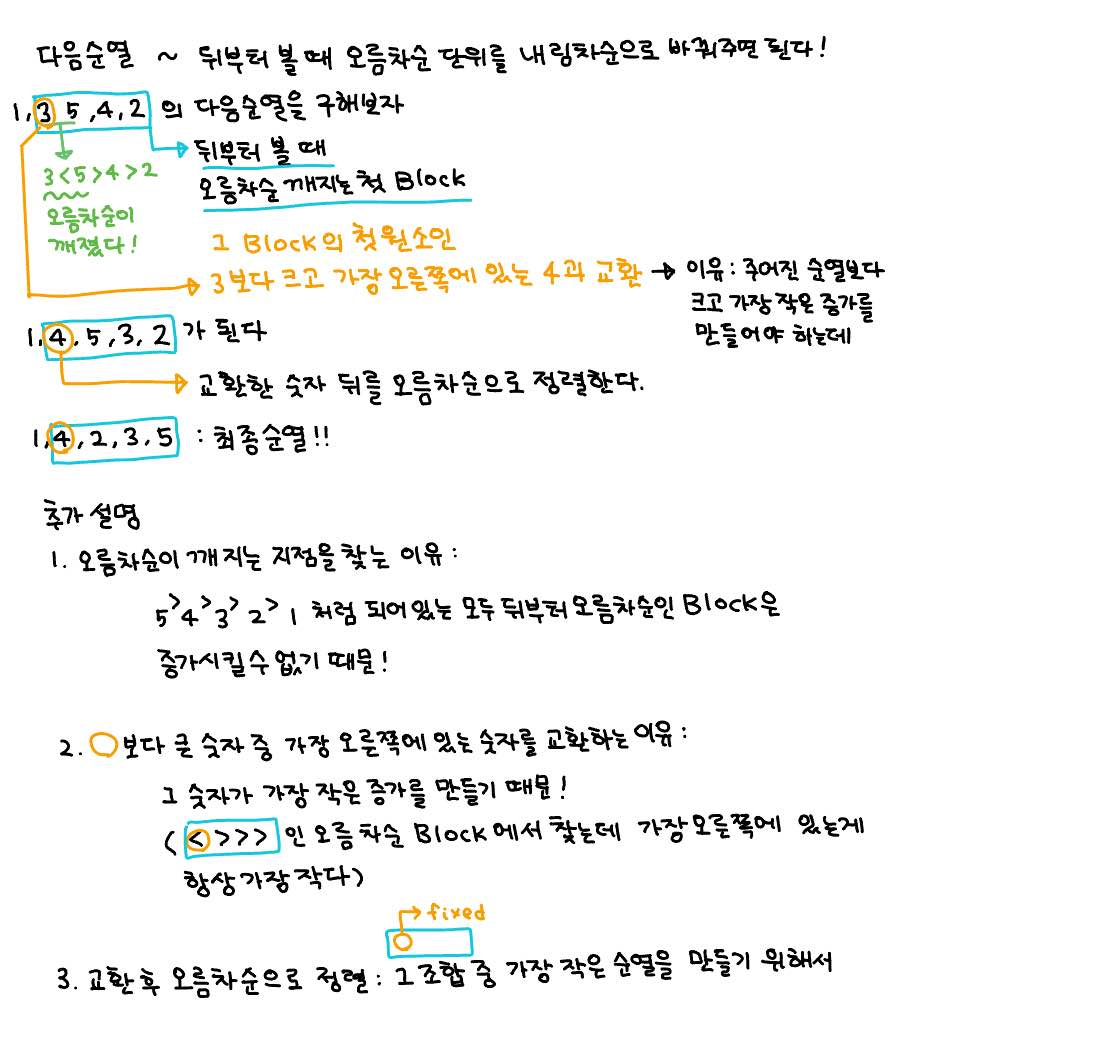 다음순열 ~ 뒤부터 볼 때 오름차순 단위를 내림차순으로 바꿔주면 된다!
1, 3 5, 4, 2 의 다음순열을 구해보자
뒤부터 볼 때
3<5>4>2
오름차순 깨지는 첫 Block
오름차순이
깨졌다!
그 Block의 첫 원소인
3보다 크고 가장 오른쪽에 있는 4과 교환 → 이유: 주어진 순열보다
크고 가장 작은 증가를
만들어야 하는데
1, 4, 5, 3, 2 가 된다
교환한 숫자 뒤를 오름차순으로 정렬한다.
1, 4, 2, 3, 5 : 최종순열!!
추가 설명
1. 오름차순이 깨지는 지점을 찾는 이유:
5>4>3>2>1 처럼 되어있는 모두 뒤부터 오름차순인 Block은
증가시킬 수 없기 때문!
2. ○보다 큰 숫자 중 가장 오른쪽에 있는 숫자를 교환하는 이유:
그 숫자가 가장 작은 증가를 만들기 때문!
(<>>> 인 오름차순 Block에서 찾는데 가장 오른쪽에 있는게
항상 가장 작다)
fixed
3. 교환 후 오름차순으로 정렬: 그 조합 중 가장 작은 순열을 만들기 위해서